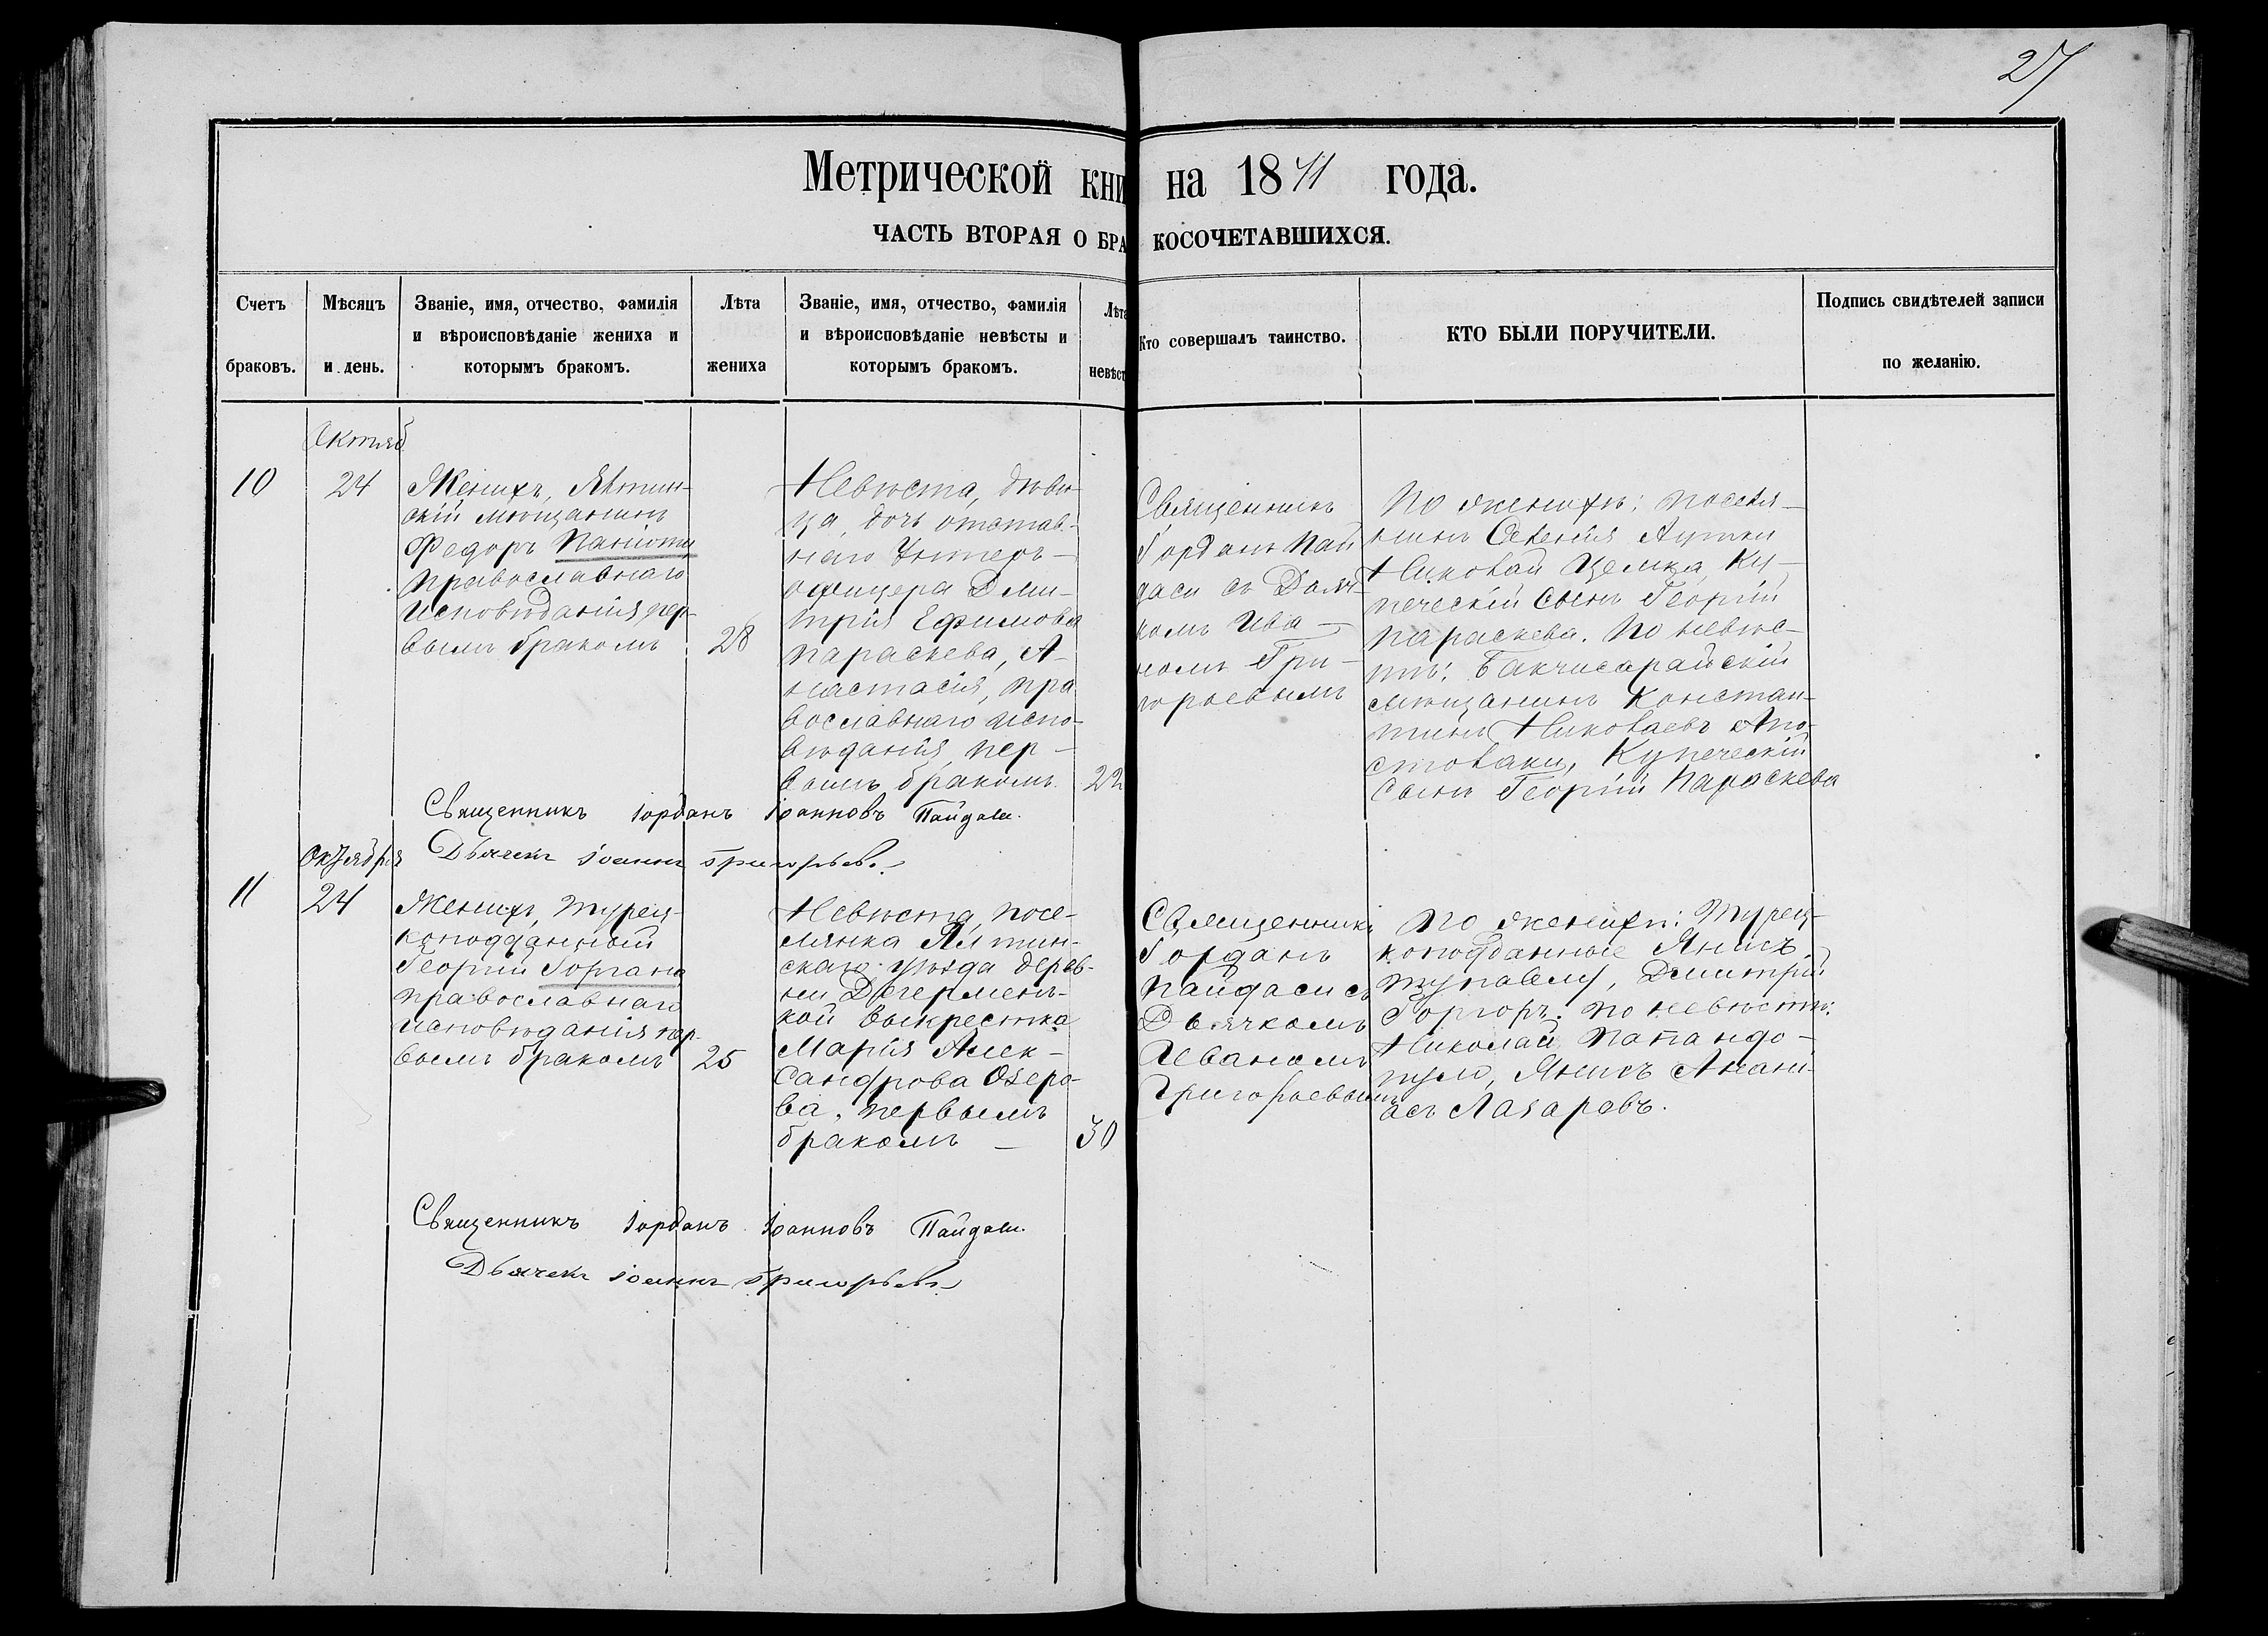 27
Метрической кни на 1871 года.
ЧАСТЬ ВТОРАЯ О БРА КОСОЧЕТАВШИХСЯ.
Счетъ браковъ.
Мѣсяцъ и день.
Званіе, имя, отчество, фамилія
и вѣроисповѣданіе жениха и
которымъ бракомъ.
Лѣта
жениха
Званіе, имя, отчество, фамилія
и вѣроисповѣданіе невѣсты и
которымъ бракомъ.
Лѣта
невѣст
Кто совершалъ таинство.
КТО БЫЛИ ПОРУЧИТЕЛИ.
Подпись свидѣтелей записи
по желанію.
Октяб
10
24
Женихъ, Ялтин-
скій мѣщанинъ
Федоръ Паниоти
православнаго
исповѣданія пер-
вымъ бракомъ
28
Невѣста, дѣви-
ца, дочь отстав-
наго Унтеръ-
офицера Дми-
трія Ефимова
Параскева, А-
настасія, пра
вославнаго испо-
вѣданія, пер-
вымъ бракомъ
22
Священникъ
Іорданъ Пай
даси съ Дьяч-
комъ Ива-
номъ Гри-
горьевымъ
По женихѣ: поселя-
нинъ Селенія Аутки
Николай Целика, Ку-
печескій сынъ Георгій
Параскева. По невѣс-
тѣ: Бакчисарайскій
мѣщанинъ Констан-
тинъ Николаевъ Апо-
столаки, Купеческій
Сынъ Георгій Параскева
Священникъ Іорданъ Іоанновъ Пайдаси.
Дьячекъ Іоаннъ Григорьевъ
Октября
11
24
Женихъ, Турец-
коподданный
Георгій Горгана
православнаго
исповѣданія пер-
вымъ бракомъ
25
Невѣста, посе-
лянка Ялтин-
скаго уѣзда дерев-
ни Дегермень-
кой выкрестка
Марія Алек-
сандрова Озеро-
ва, первымъ
бракомъ
30
Священникъ
Іорданъ
Пайдаси съ
Дьячкомъ
Иваномъ
Григорьевымъ
По женихѣ: Турец-
коподданные Янисъ
Дмитрій
Горгоръ. по невѣстѣ:
Николай Папандо-
пуло, Янисъ Анані-
асъ Лазаревъ.
Священникъ Іорданъ Іоанновъ Пайдаси.
Дьячекъ Іоаннъ Григорьевъ